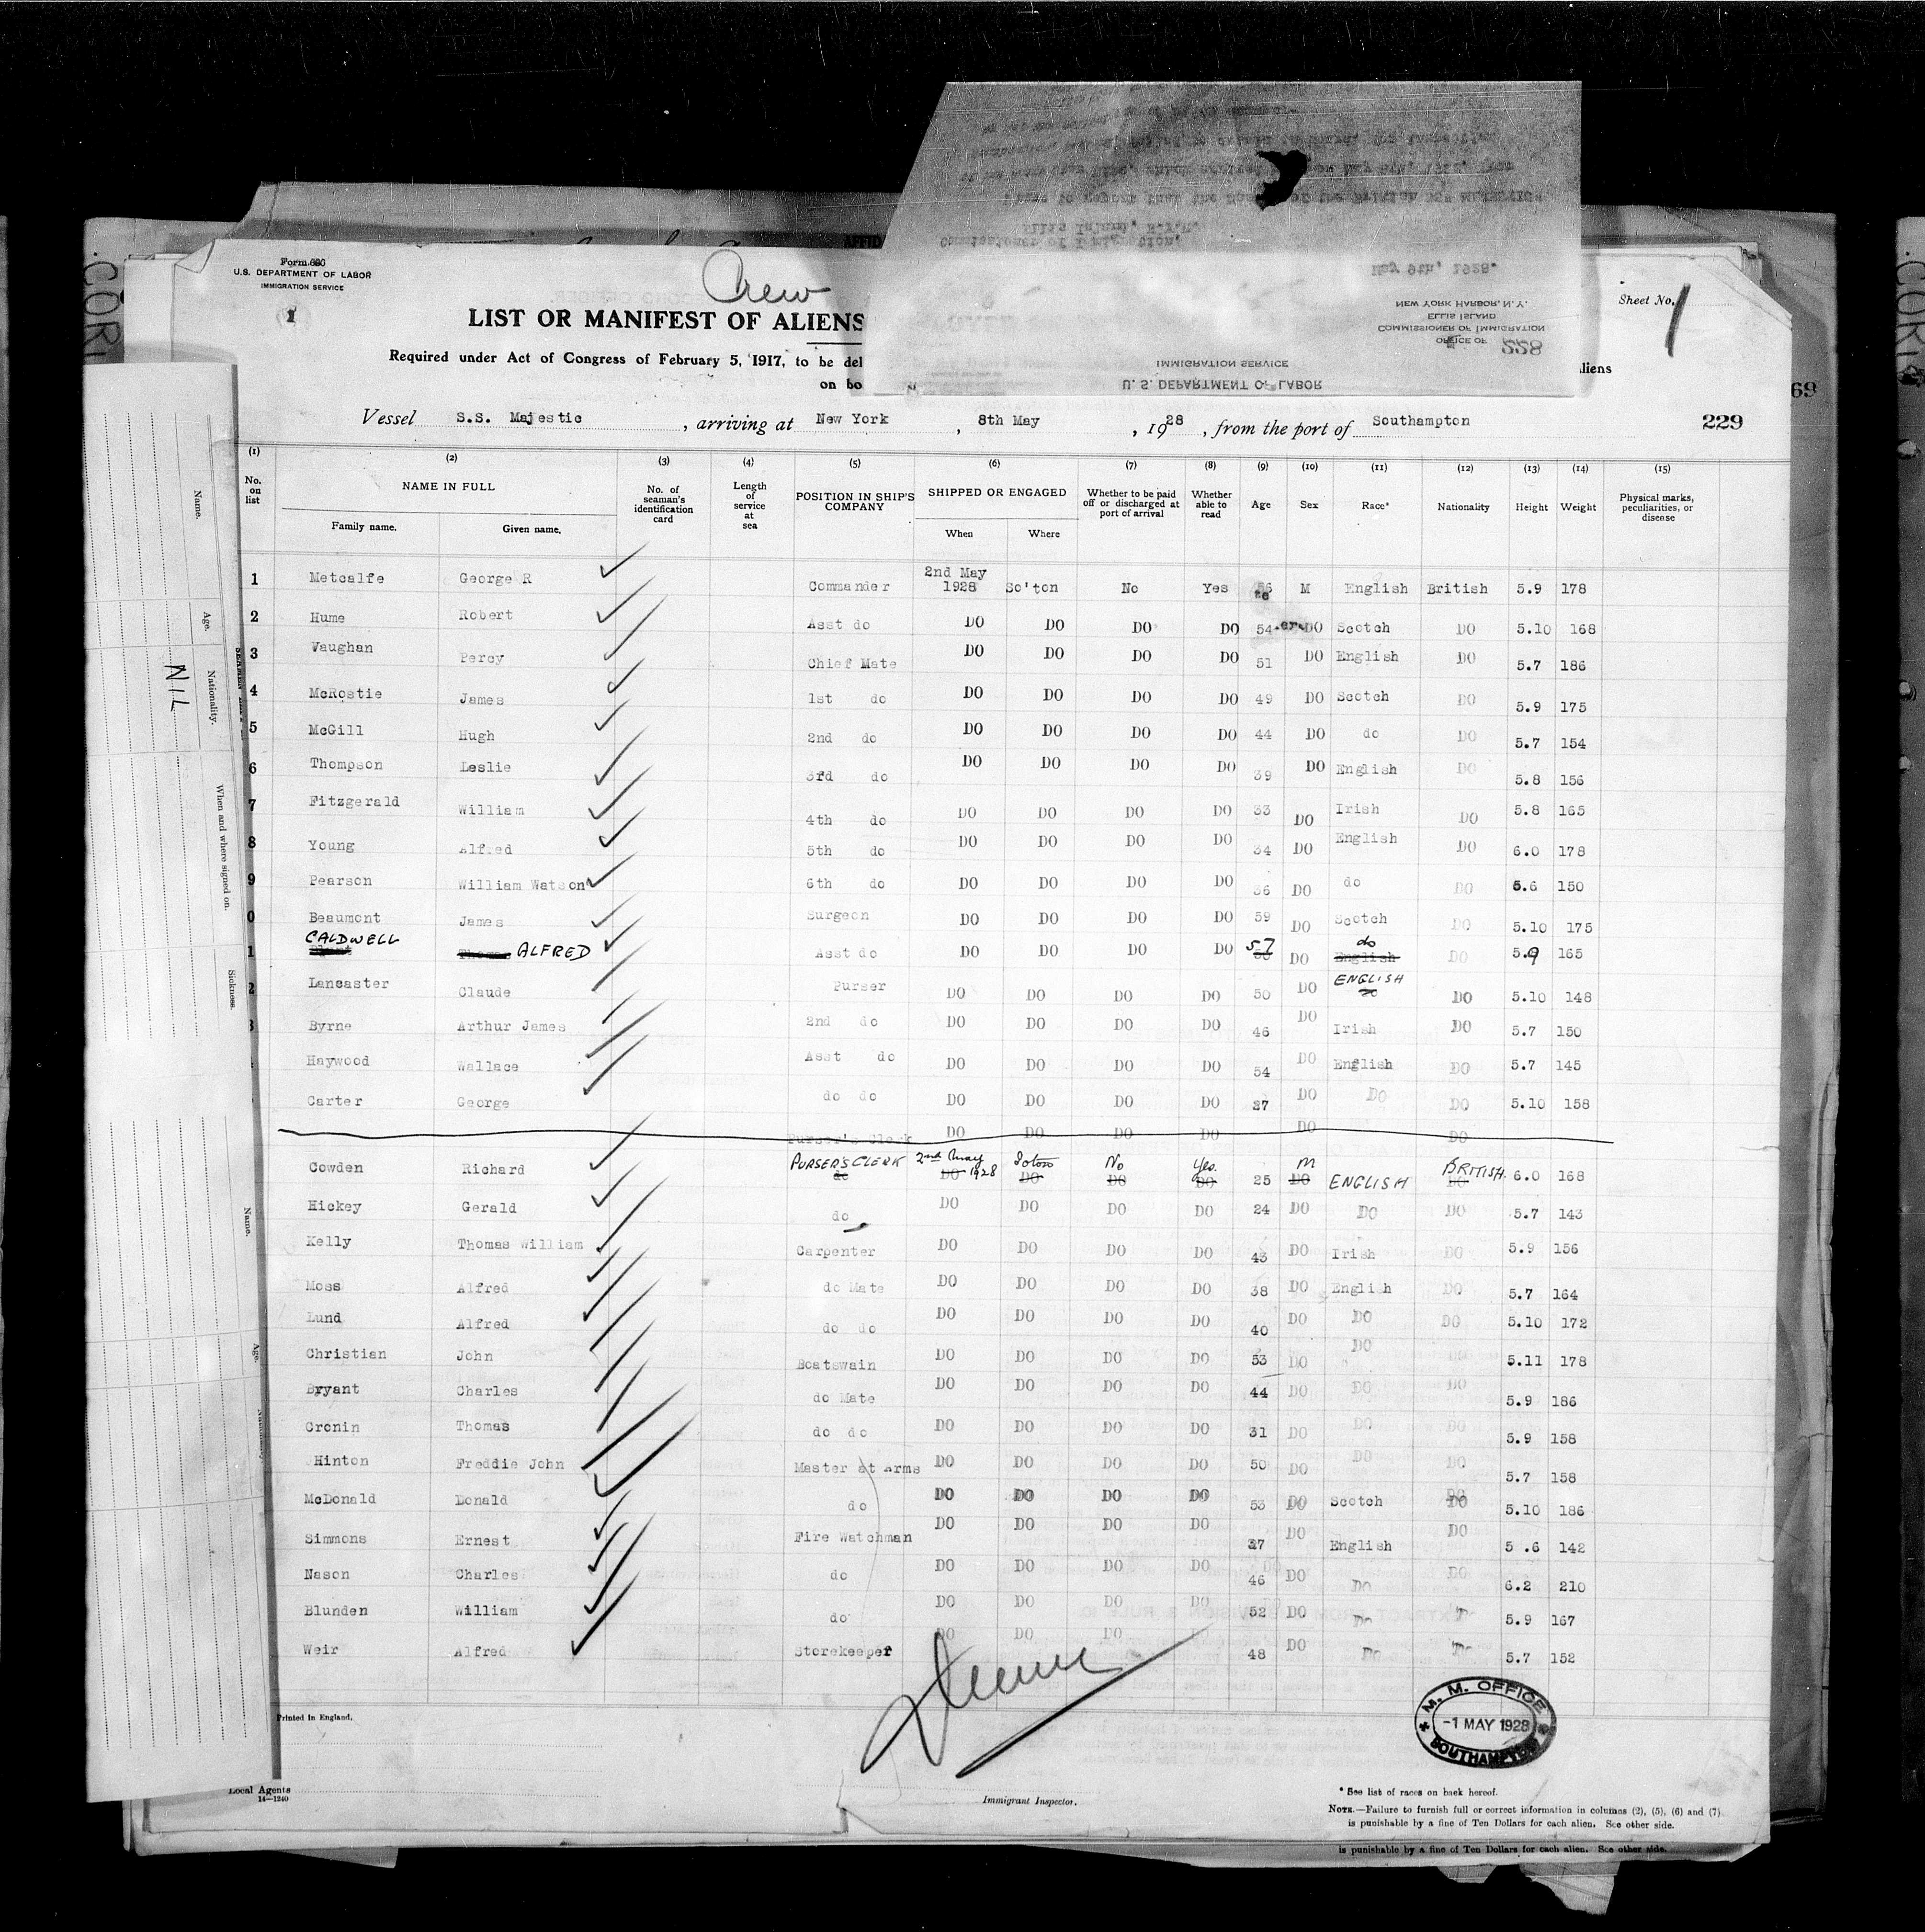 Form 686
U.S. DEPARTMENT OF LABOR
IMMIGRATION SERVICE
1
Crew
LIST OR MANIFEST OF ALIENS
Required under Act of Congress of February 5, 1917, to be del
on bo
aliens
Sheet No. 1
May 9th, 1928.
NEW YORK HARBOR, N.Y.
ELLIS ISLAND
COMMISSIONER OF IMMIGRATION
OFFICE OF
228
IMMIGRATION SERVICE
U. S. DEPARTMENT OF LABOR
69
Vessel S.S. Majestic, arriving at New York, 8th May, 1928, from the port of Southampton
229
(1) (2) (3) (4) (5) (6) (7) (8) (9) (10) (11) (12) (13) (14) (15)
No. on list NAME IN FULL Family name. Given name. No. of seaman's identification card Length of service at sea POSITION IN SHIP'S COMPANY SHIPPED OR ENGAGED When Where Whether to be paid off or discharged at port of arrival Whether able to read Age Sex Race* Nationality Height Weight Physical marks, peculiarities, or disease
1 Metcalfe George R Commander 2nd May 1928 So'ton No Yes 56 M English British 5.9 178
2 Hume Robert Asst do DO DO DO DO 54 DO Scotch DO 5.10 168
3 Vaughan Percy Chief Mate DO DO DO DO 51 DO English DO 5.7 186
4 McRostie James 1st do DO DO DO DO 49 DO Scotch DO 5.9 175
5 McGill Hugh 2nd do DO DO DO DO 44 DO do DO 5.7 154
6 Thompson Leslie 3rd do DO DO DO DO 39 DO English DO 5.8 156
7 Fitzgerald William 4th do DO DO DO DO 33 DO Irish DO 5.8 165
8 Young Alfred 5th do DO DO DO DO 34 DO English DO 6.0 178
9 Pearson William Watson 6th do DO DO DO DO 36 DO do DO 5.6 150
0 Beaumont James Surgeon DO DO DO DO 59 DO Scotch DO 5.10 175
1 CALDWELL ALFRED Asst do DO DO DO DO 57 DO do English DO 5.9 165
2 Lancaster Claude Purser DO DO DO DO 50 DO ENGLISH DO 5.10 148
3 Byrne Arthur James 2nd do DO DO DO DO 46 DO Irish DO 5.7 150
Haywood Wallace Asst do DO DO DO DO 54 DO English DO 5.7 145
Carter George do do DO DO DO DO 37 DO DO DO 5.10 158
Purser's Clerk DO DO DO DO DO DO
Cowden Richard PURSER'S CLERK do 2nd May 1928 DO Soton DO No DO Yes. DO 25 M DO ENGLISH BRITISH. DO 6.0 168
Hickey Gerald do DO DO DO DO 24 DO DO DO 5.7 143
Kelly Thomas William Carpenter DO DO DO DO 43 DO Irish DO 5.9 156
Moss Alfred do Mate DO DO DO DO 38 DO English DO 5.7 164
Lund Alfred do do DO DO DO DO 40 DO DO DO 5.10 172
Christian John Boatswain DO DO DO DO 53 DO DO 5.11 178
Bryant Charles do Mate DO DO DO DO 44 DO DO DO 5.9 186
Cronin Thomas do do DO DO DO DO 31 DO DO DO 5.9 158
Hinton Freddie John Master at Arms DO DO DO DO 50 DO DO DO 5.7 158
McDonald Donald do DO DO DO DO 53 DO Scotch DO 5.10 186
Simmons Ernest Fire Watchman DO DO DO DO 37 DO English DO 5.6 142
Nason Charles do DO DO DO DO 46 DO Do DO 6.2 210
Blunden William do DO DO DO DO 52 DO Do 5.9 167
Weir Alfred Storekeeper DO DO DO 48 DO Do Do 5.7 152
Printed in England.
Local Agents
14—1240
Immigrant Inspector.
M. M. OFFICE
-1 MAY 1928
SOUTHAMPTON
* See list of races on back hereof.
NOTE.—Failure to furnish full or correct information in columns (2), (5), (6) and (7)
is punishable by a fine of Ten Dollars for each alien. See other side.
is punishable by a fine of Ten Dollars for each alien. See other side.
Name.
Age.
Nationality.
NIL
When and where signed on.
Sickness.
Name.
Age.